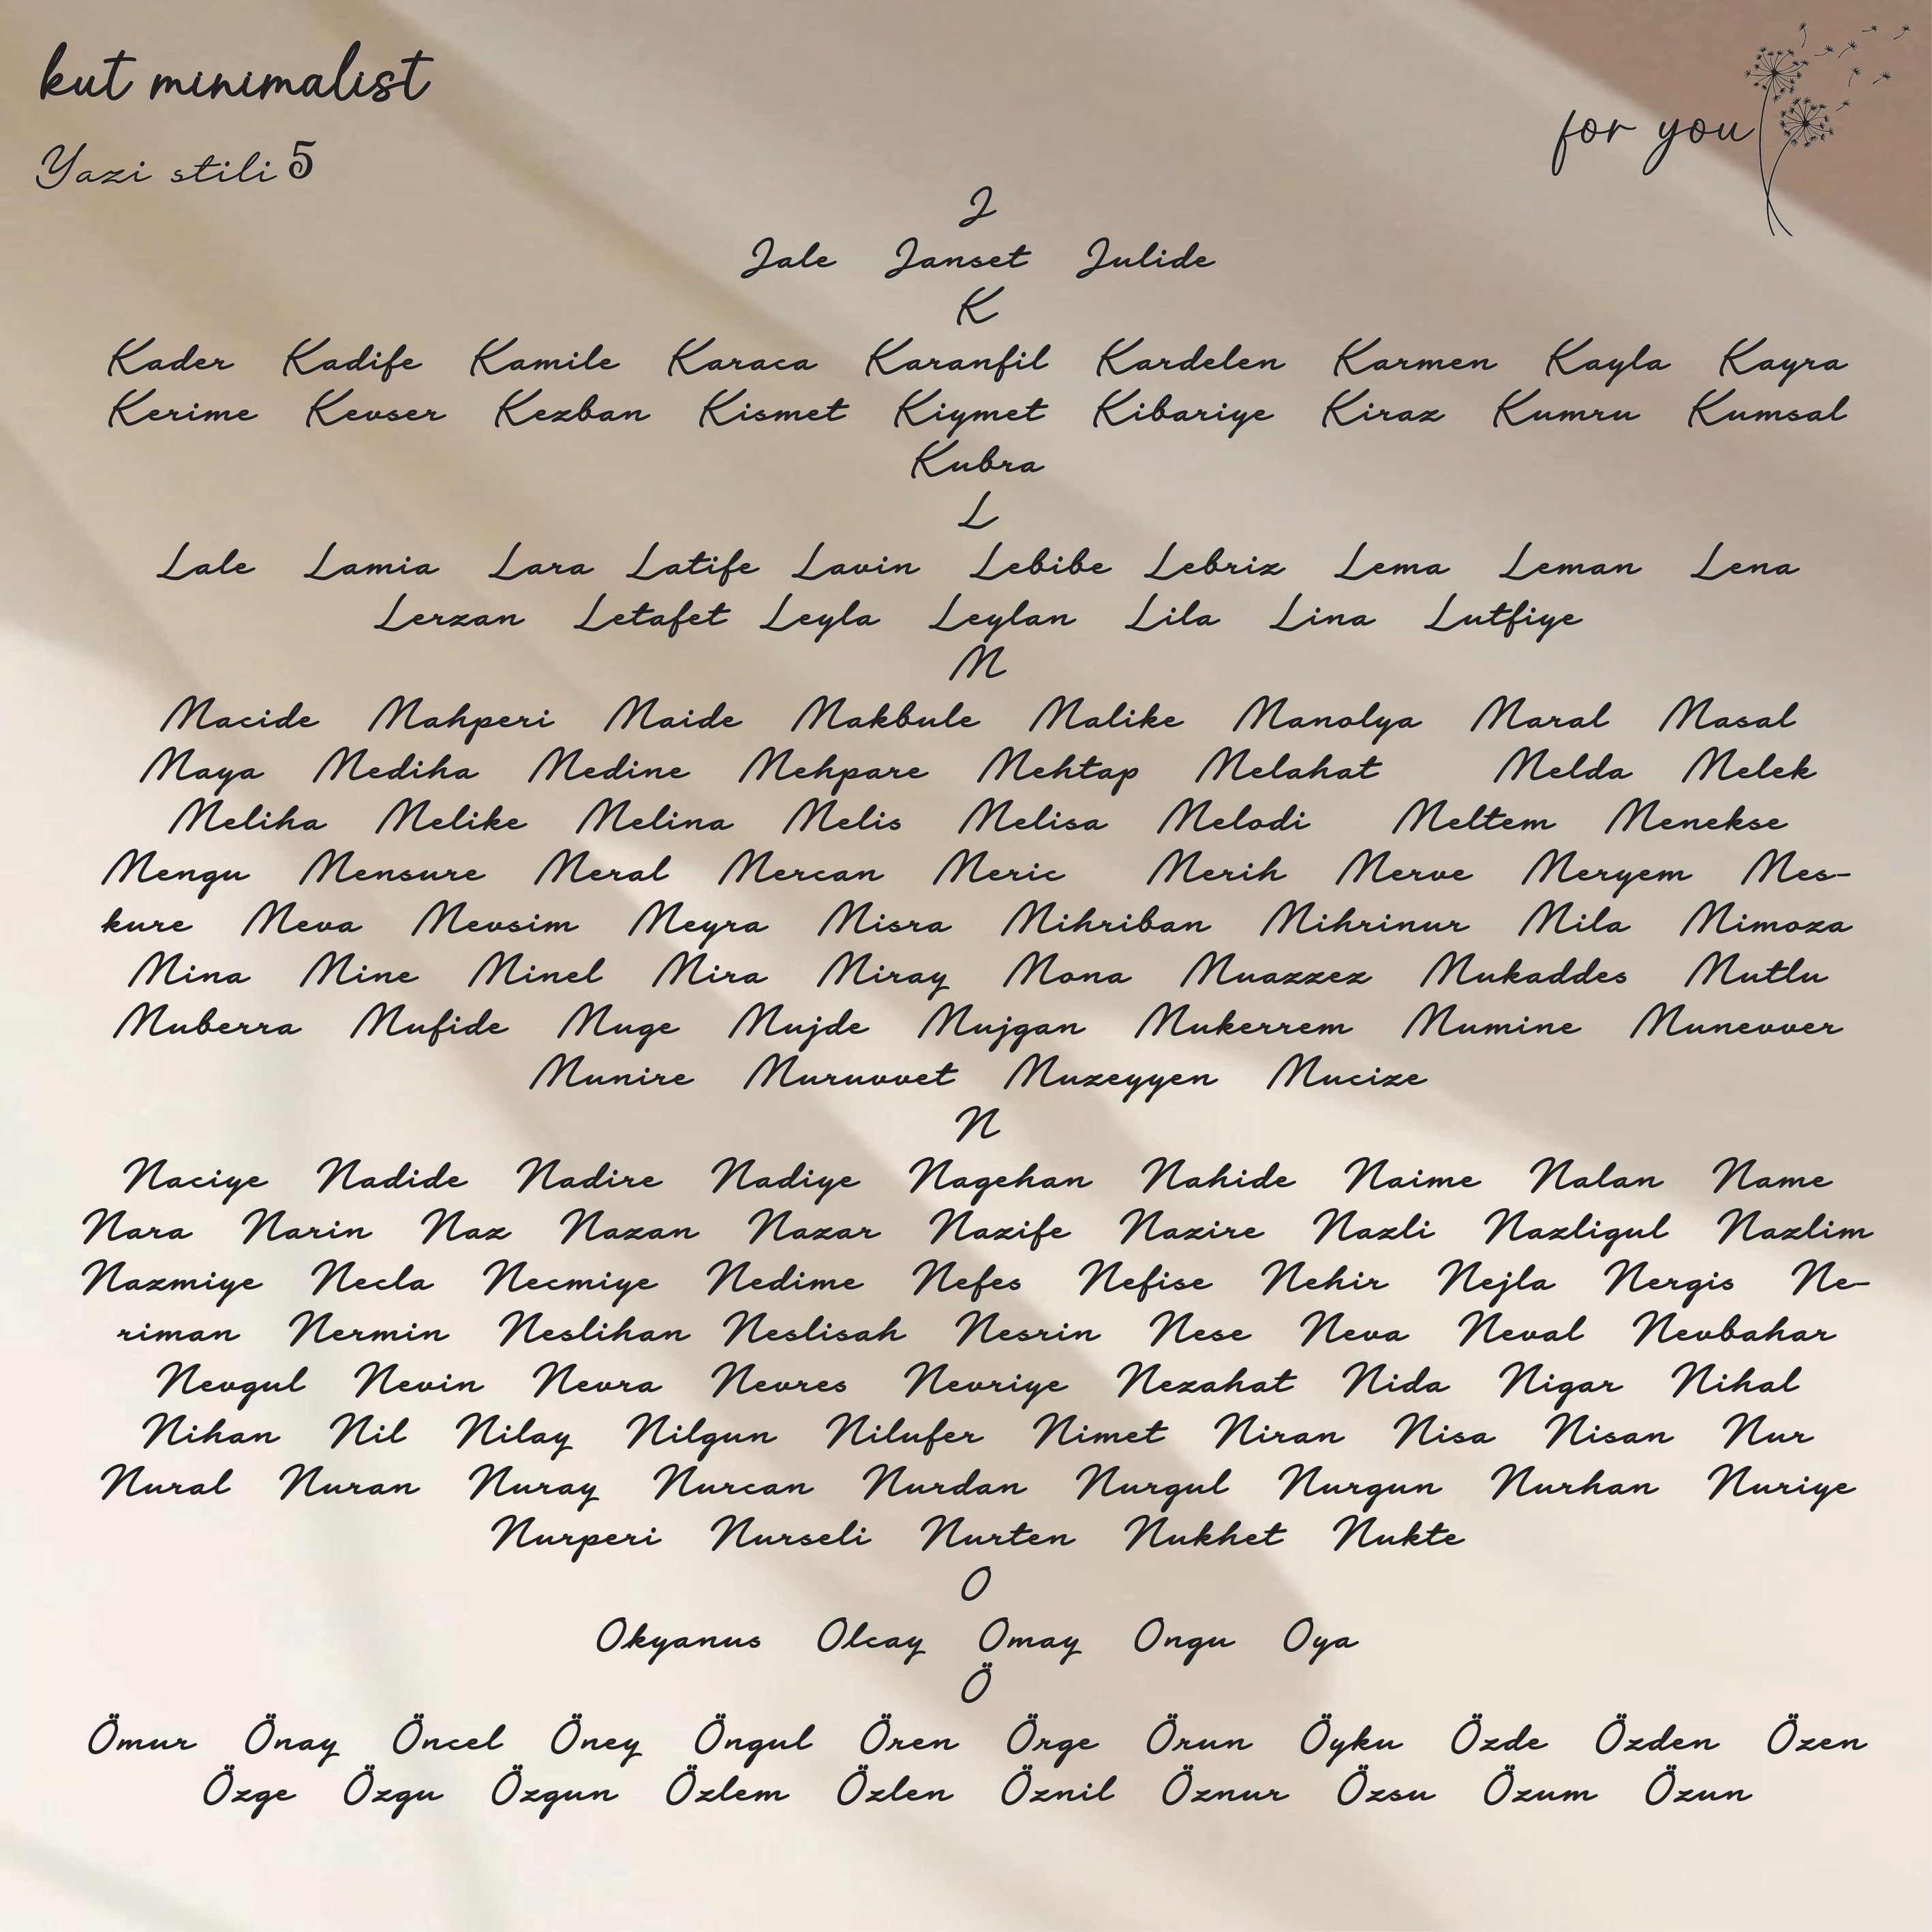 kut minimalist
for you
Yazi stili 5
J
Jale Janset Julide
K
Kader Kadife Kamile Karaca Karanfil Kardelen Karmen Kayla Kayra
Kerime Kevser Kezban Kismet Kiymet Kibariye Kiraz Kumru Kumsal
Kubra
L
Lale Lamia Lara Latife Lavin Lebibe Lebriz Lema Leman Lena
Lerzan Letafet Leyla Leylan Lila Lina Lutfiye
M
Macide Mahperi Maide Makbule Malike Manolya Maral Masal
Maya Mediha Medine Mehpare Mehtap Melahat Melda Melek
Meliha Melike Melina Melis Melisa Melodi Meltem Menekse
Mengu Mensure Meral Mercan Meric Merih Merve Meryem Mes-
kure Meva Mevsim Meyra Misra Mihriban Mihrinur Mila Mimoza
Mina Mine Minel Mira Miray Mona Muazzez Mukaddes Mutlu
Muberra Mufide Muge Mujde Mujgan Mukerrem Mumine Munevver
Munire Muruvvet Muzeyyen Mucize
N
Naciye Nadide Nadire Nadiye Nagehan Nahide Naime Nalan Name
Nara Narin Naz Nazan Nazar Nazife Nazire Nazli Nazligul Nazlim
Nazmiye Necla Necmiye Nedime Nefes Nefise Nehir Nejla Nergis Ne-
riman Nermin Neslihan Neslisah Nesrin Nese Neva Neval Nevbahar
Nevgul Nevin Nevra Nevres Nevriye Nezahat Nida Nigar Nihal
Nihan Nil Nilay Nilgun Nilufer Nimet Niran Nisa Nisan Nur
Nural Nuran Nuray Nurcan Nurdan Nurgul Nurgun Nurhan Nuriye
Nurperi Nurseli Nurten Nukhet Nukte
O
Okyanus Olcay Omay Ongu Oya
Ö
Ömur Önay Öncel Öney Öngul Ören Örge Örun Öyku Özde Özden Özen
Özge Özgu Özgun Özlem Özlen Öznil Öznur Özsu Özum Özun